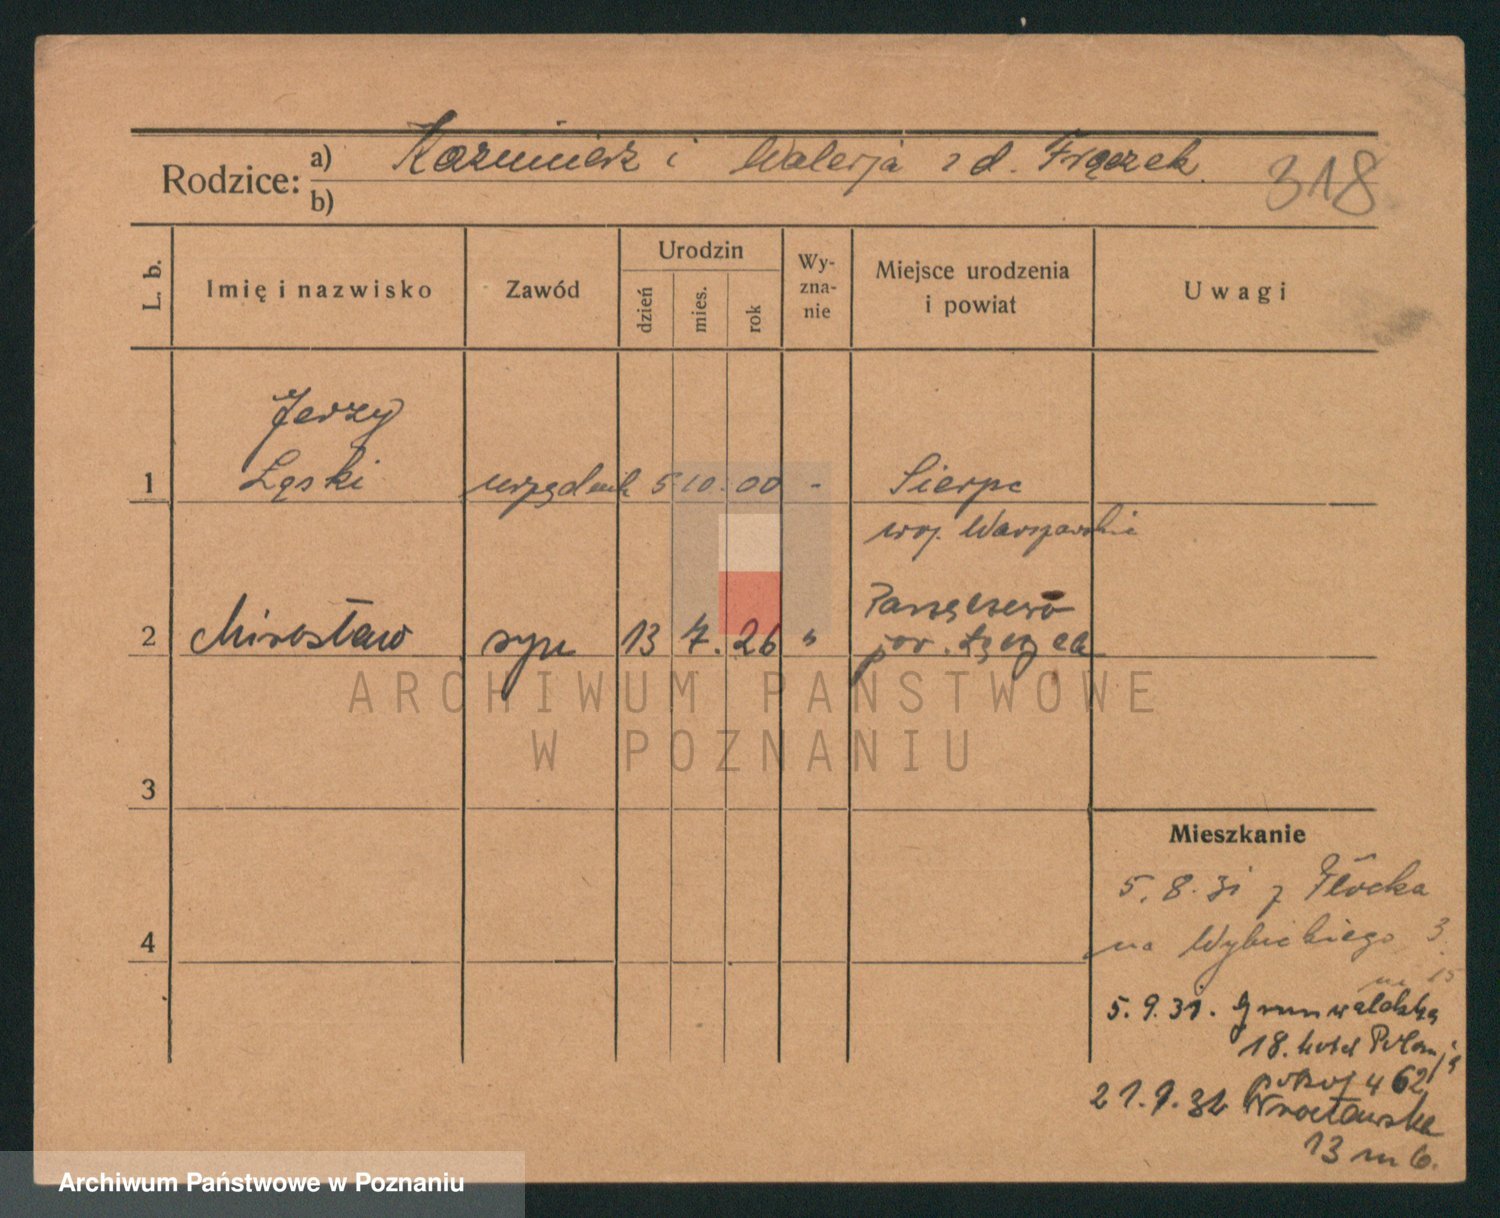 Rodzice: a) Kazimierz i Walerja z d. Frączek
b)
318
L. b.
Imię i nazwisko
Zawód
Urodzin
dzień
mies.
rok
Wy-
zna-
nie
Miejsce urodzenia
i powiat
Uwagi
Jerzy
1 Łęski urzędnik 5 10. 00 - Sierpc
woj. Warszawskie
2 Mirosław syn 13 7. 26 "
pow. Łęczyca
ARCHIWUM PAŃSTWOWE
W POZNANIU
3
Mieszkanie
5. 8. 31 z Płocka
4
na Wybickiego 3.
m 15
5. 9. 31. Grunwaldzka
18. hotel Polonja
pokoj 462
21. 9. 32 Wrocławska
13 m 6.
Archiwum Państwowe w Poznaniu